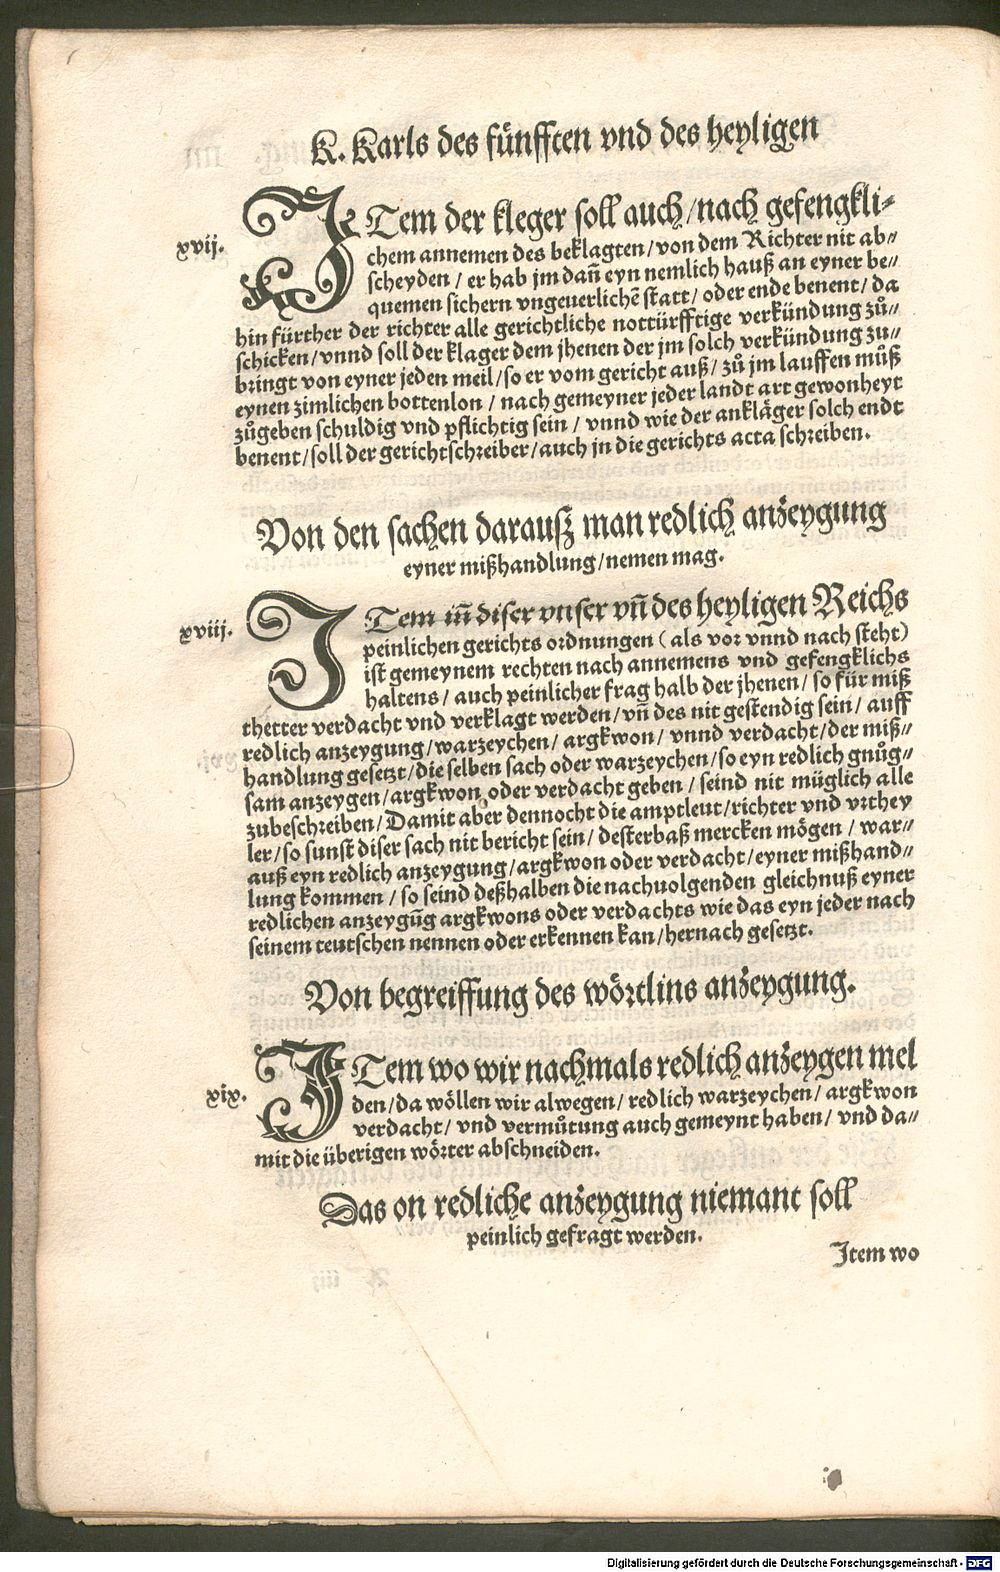 K. Karls des fünfften vnd des heyligen
xvij.
ITem der kleger soll auch/nach gefengkli⸗
chem annemen des beklagten/von dem Richter nit ab⸗
scheyden/ er hab jm dañ eyn nemlich hauß an eyner be⸗
quemen sichern vngeuerlichẽ statt/ oder ende benent/ da
hin fürther der richter alle gerichtliche nottürfftige verkündung zů⸗
schicken/vnnd soll der klager dem jhenen der jm solch verkündung zu⸗
bringt von eyner jeden meil/so er vom gericht auß/ zů jm lauffen můß
eynen zimlichen bottenlon/ nach gemeyner jeder landt art gewonheyt
zůgeben schuldig vnd pflichtig sein/ vnnd wie der ankläger solch endt
benent/soll der gerichtschreiber/auch jn die gerichts acta schreiben.
Von den sachen darausz man redlich anzeygung
eyner mißhandlung/nemen mag.
xviij.
ITem iñ diser vnser vñ des heyligen Reichs
peinlichen gerichts ordnungen (als vor vnnd nach steht)
ist gemeynem rechten nach annemens vnd gefengklichs
haltens/ auch peinlicher frag halb der jhenen/ so für miß
thetter verdacht vnd verklagt werden/vñ des nit gestendig sein/ auff
redlich anzeygung/warzeychen/ argkwon/ vnnd verdacht/der miß⸗
handlung gesetzt/die selben sach oder warzeychen/so eyn redlich gnůg⸗
sam anzeygen/argkwon oder verdacht geben/ seind nit müglich alle
zubeschreiben/Damit aber dennocht die amptleut/richter vnd vrthey
ler/so sunst diser sach nit bericht sein/ desterbaß mercken mögen/ war⸗
auß eyn redlich anzeygung/argkwon oder verdacht/eyner mißhand⸗
lung kommen/so seind deßhalben die nachuolgenden gleichnuß eyner
redlichen anzeygũg argkwons oder verdachts wie das eyn jeder nach
seinem teutschen nennen oder erkennen kan/hernach gesetzt.
Von begreiffung des wörtlins anzeygung.
xix.
ITem wo wir nachmals redlich anzeygen mel
den/da wöllen wir alwegen/ redlich warzeychen/ argkwon
verdacht/ vnd vermůtung auch gemeynt haben/ vnd da⸗
mit die überigen wörter abschneiden.
Das on redliche anzeygung niemant soll
peinlich gefragt werden.
Item wo
Digitalisierung gefördert durch die Deutsche Forschungsgemeinschaft - DFG